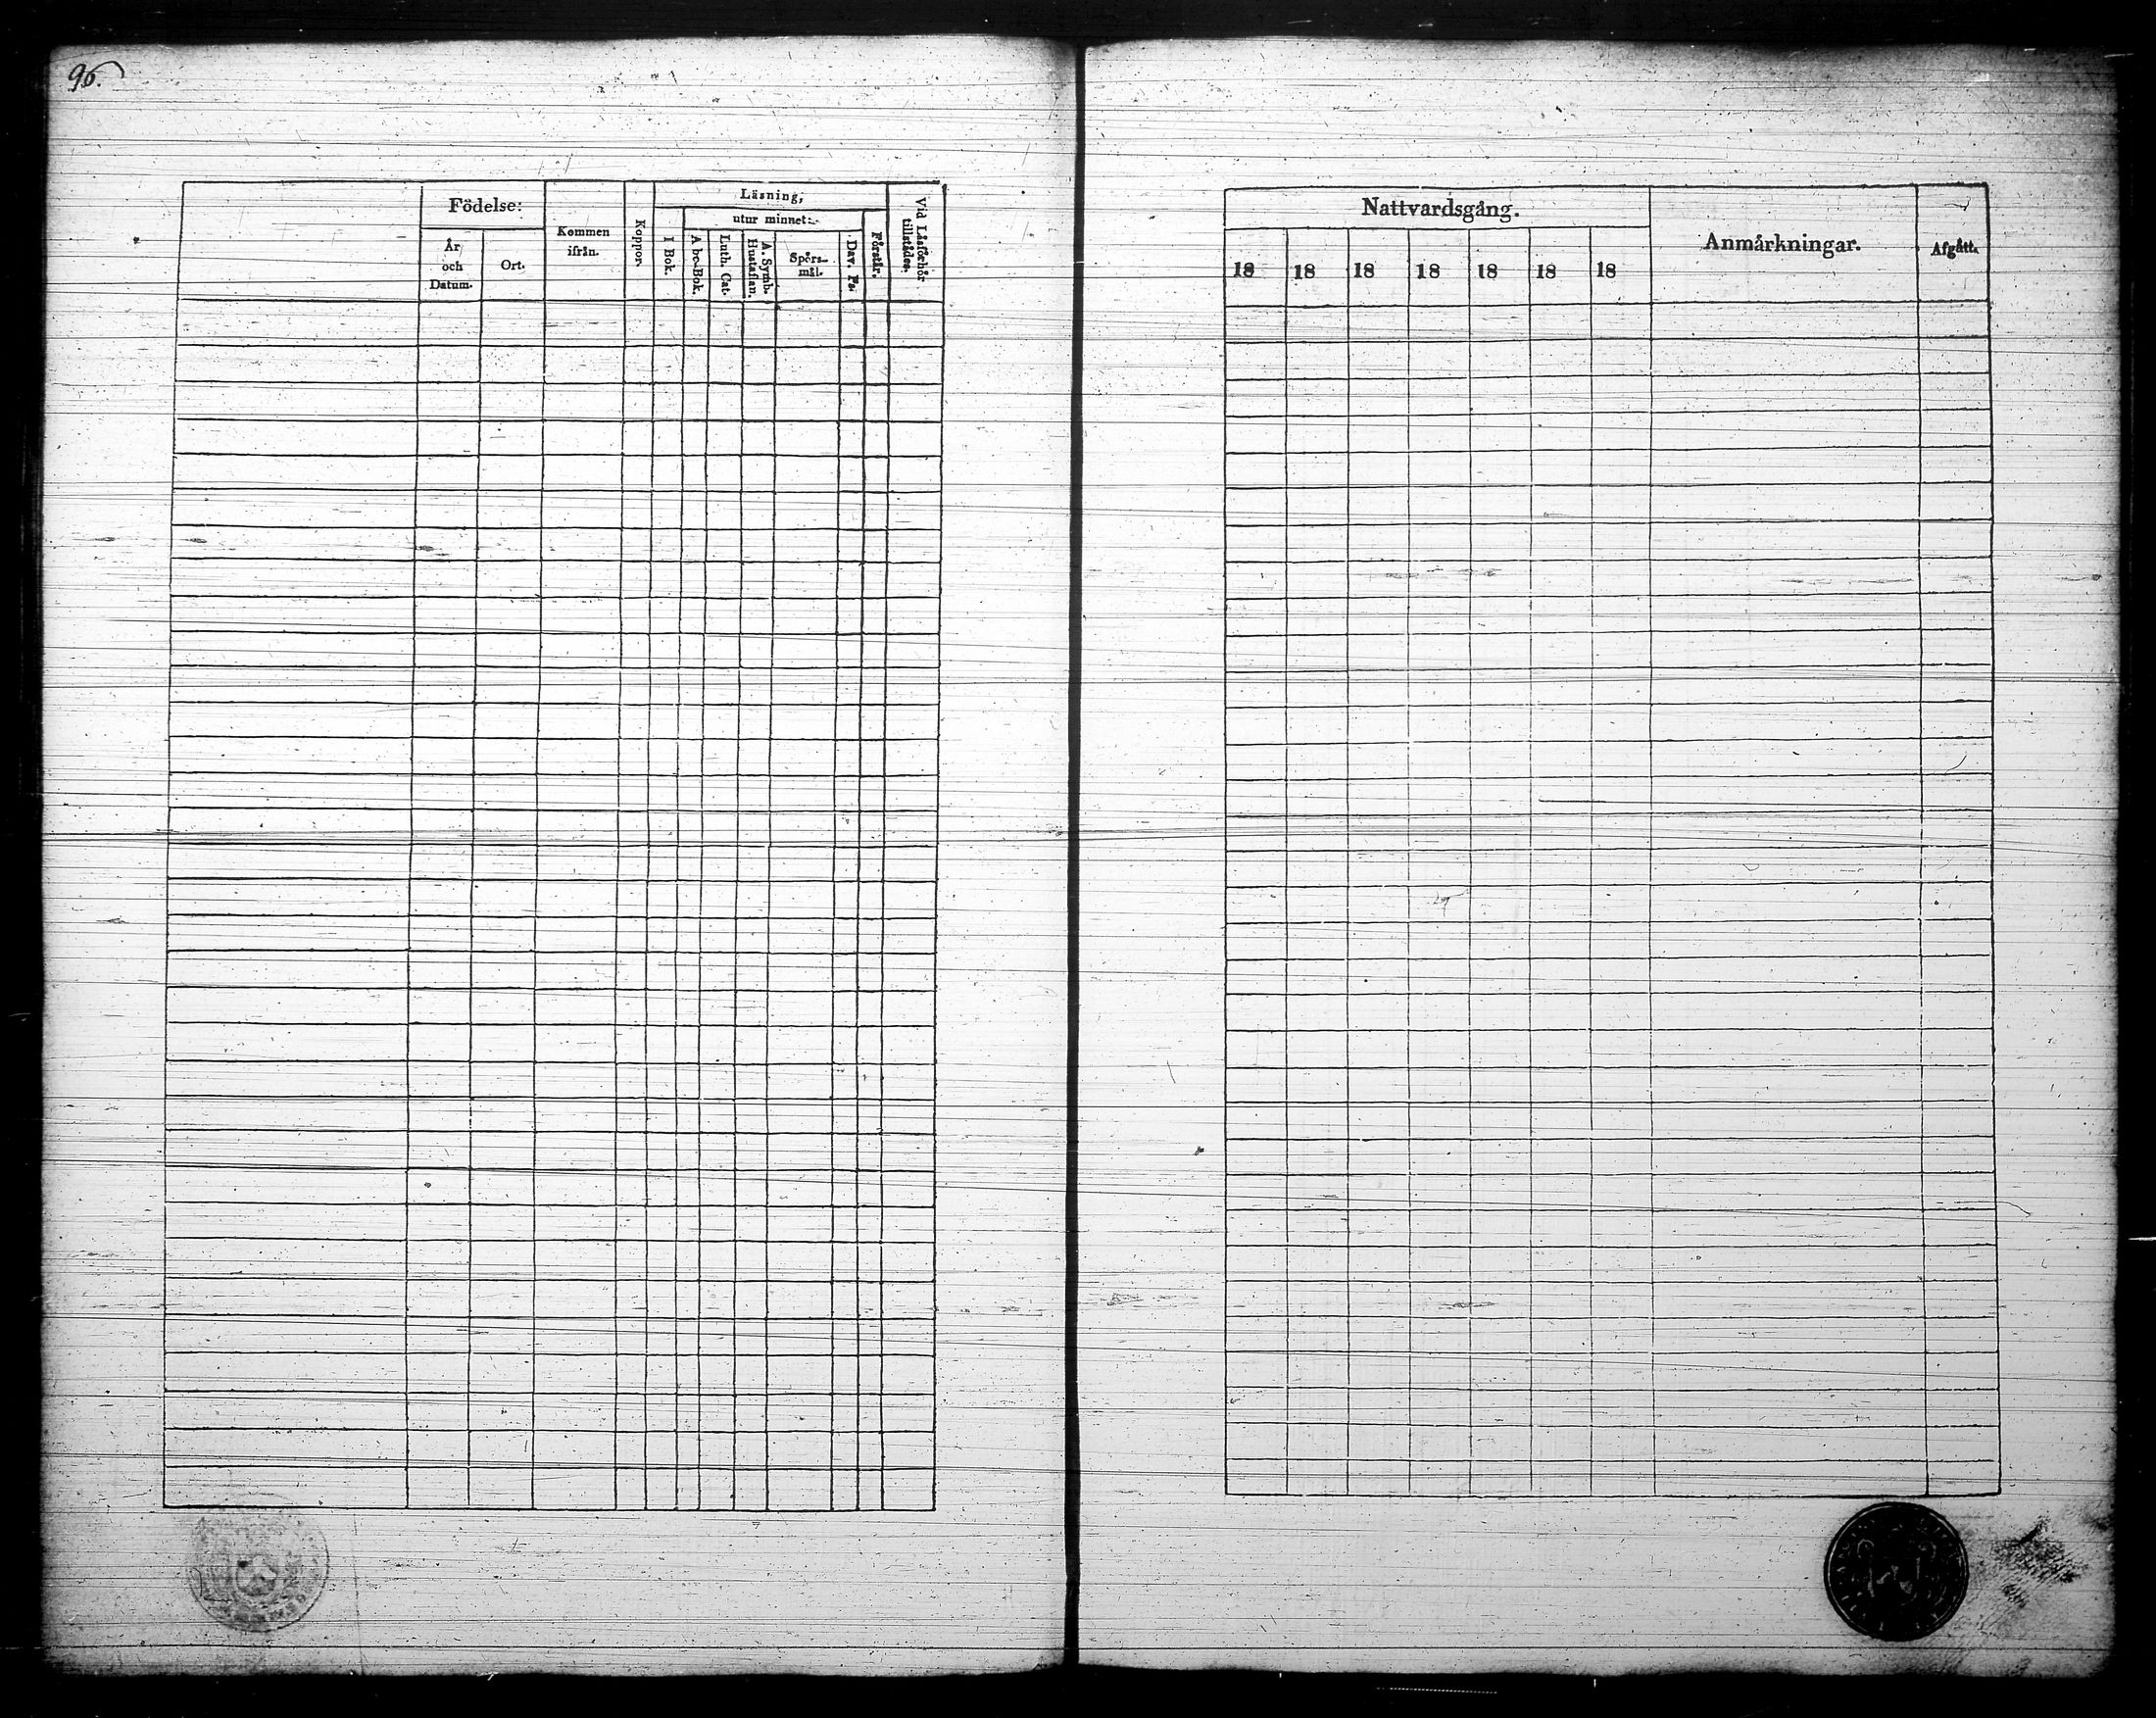 96.
Födelse:
År
och
Datum.
Ort.
Kommen
ifrån.
Koppor.
Läsning,
utur minnet:
I Bok.
A bc-Bok.
Luth. Cat.
A. Symb.
Hustaflan.
Spörs-
mål.
Dav. Ps.
Förstår.
Vid Läsförhör
tillstädes.
Nattvardsgång.
18 18 18 18 18 18 18
Anmärkningar.
Afgått.